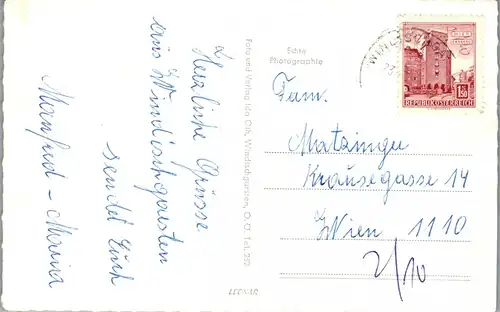 Herzliche Grüsse
aus Windischgarsten
sendet Euch
Manfred - Maria
Foto und Verlag Ida Cuk, Windischgarsten, O.-Ö. Tel. 252
Echte
Photographie
LEDNAR
WINDISCHG
1.50
REPUBLIK ÖSTERREICH
Fam.
Matzinger
Krausegasse 14
Wien 1110
2/10